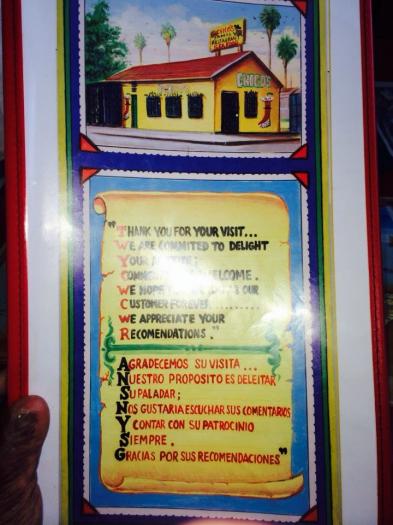 CHICO'S
RESTAURANT
CHICO'S
"THANK YOU FOR YOUR VISIT...
WE ARE COMMITED TO DELIGHT
YOUR
WELCOME.
WE HOPE OUR
CUSTOMER FOREVER.........
WE APPRECIATE YOUR
RECOMENDATIONS."
AGRADECEMOS SU VISITA...
NUESTRO PROPOSITO ES DELEITAR
SU PALADAR;
NOS GUSTARIA ESCUCHAR SUS COMENTARIOS
Y CONTAR CON SU PATROCINIO
SIEMPRE.
GRACIAS POR SUS RECOMENDACIONES"